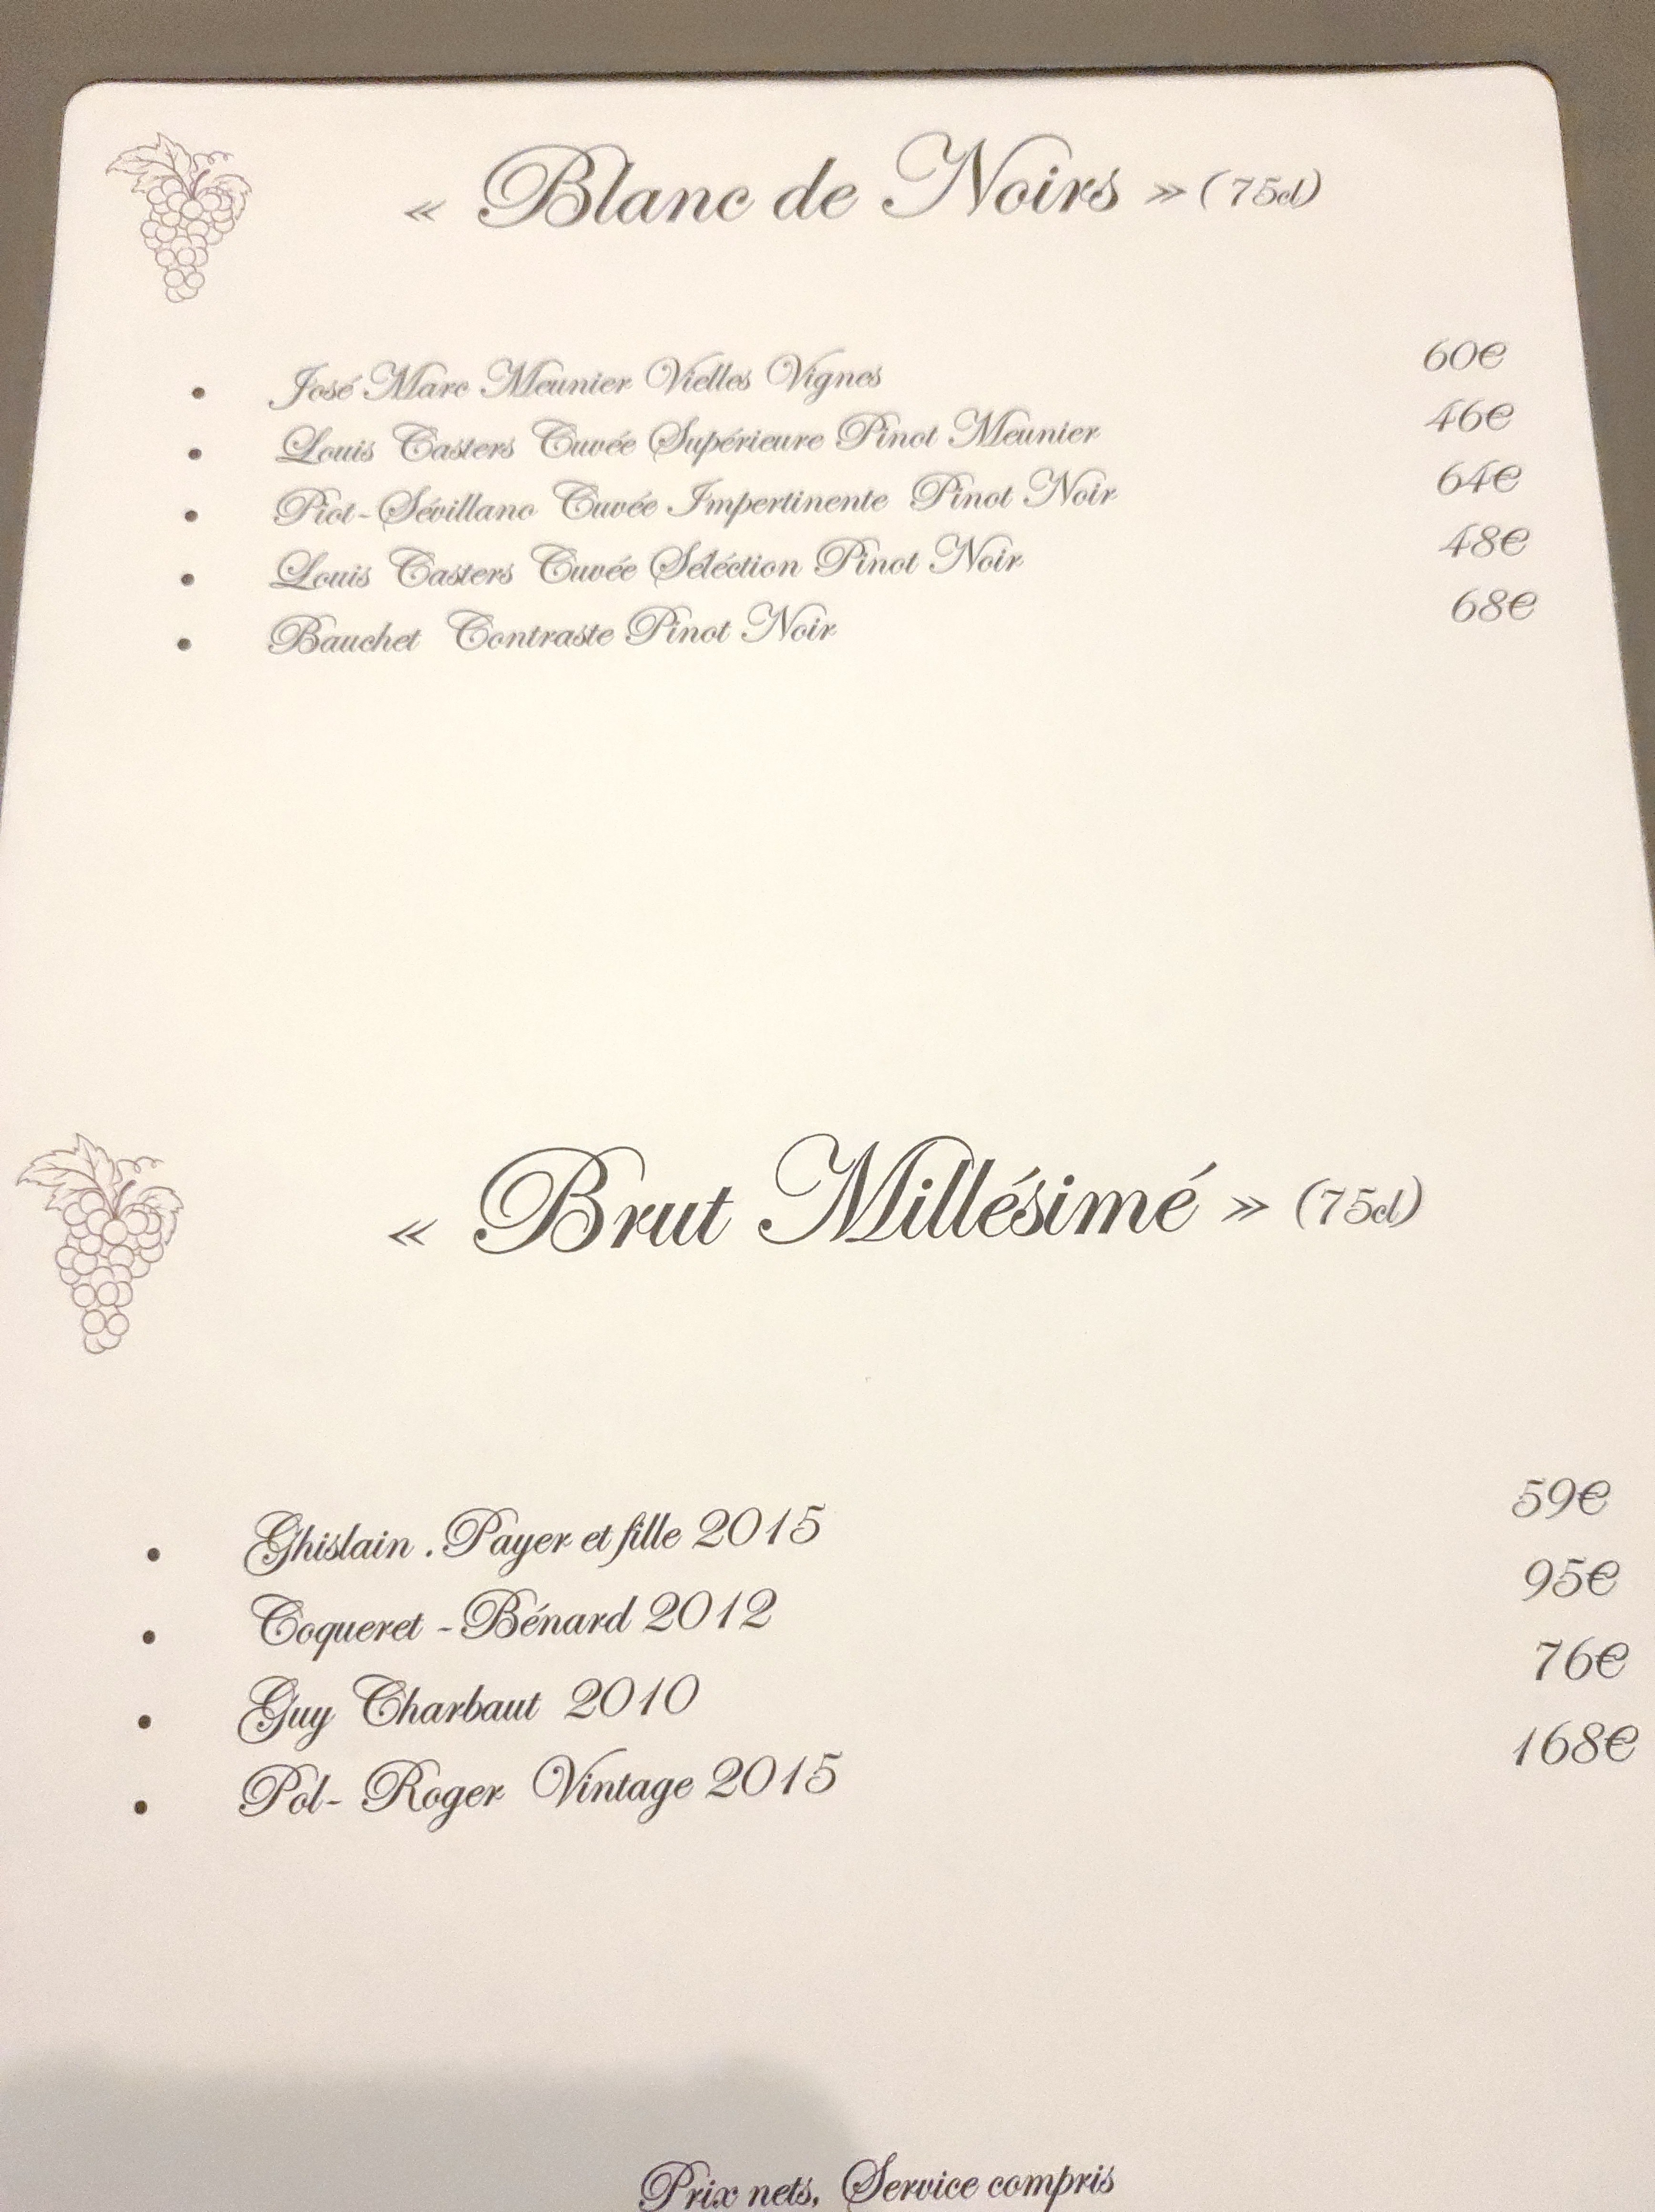 « Blanc de Noirs » (75cl)
José Marc Meunier Vielles Vignes 60€
Louis Casters Cuvée Supérieure Pinot Meunier 46€
Piot-Sévillano Cuvée Impertinente Pinot Noir 64€
Louis Casters Cuvée Séléction Pinot Noir 48€
Bauchet Contraste Pinot Noir 68€
« Brut Millésimé » (75cl)
Ghislain .Payer et fille 2015 59€
Coqueret -Bénard 2012 95€
Guy Charbaut 2010 76€
Pol- Roger Vintage 2015 168€
Prix nets, Service compris